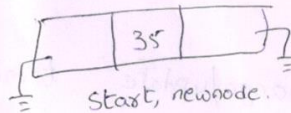 35
Start, newnode.